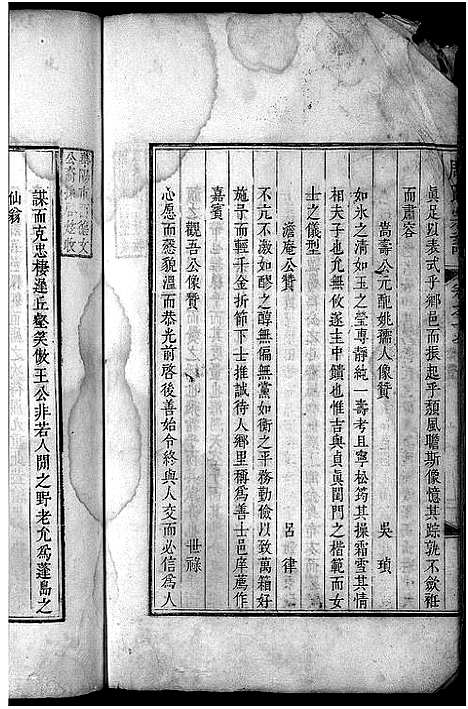 眞足以表式乎鄉邑而振起乎頹風瞻斯像憶其踪孰不歛袵
而肅容
嵩壽公元配姚孺人像贊
吳瑣
如氷之清如玉之瑩專靜純一壽考且寧松筠其操霜雪其情
相夫子也允無攸遂主中饋也惟吉與貞眞閨門之楷範而女
士之儀型
澹庵公贊
呂律
不亢不激如醪之醇無偏無黨如衡之平務勤儉以致萬箱好
施予而輕千金折節下士推誠待人鄉里稱爲善士邑庠薦作
嘉賓
觀吾公像贊
世祿
心愿而慤貌溫而恭光前啓後善始令終與人交而必信爲人
謀而克忠棲遲丘壑笑傲王公非若人間之野老允爲蓬島之
仙翁